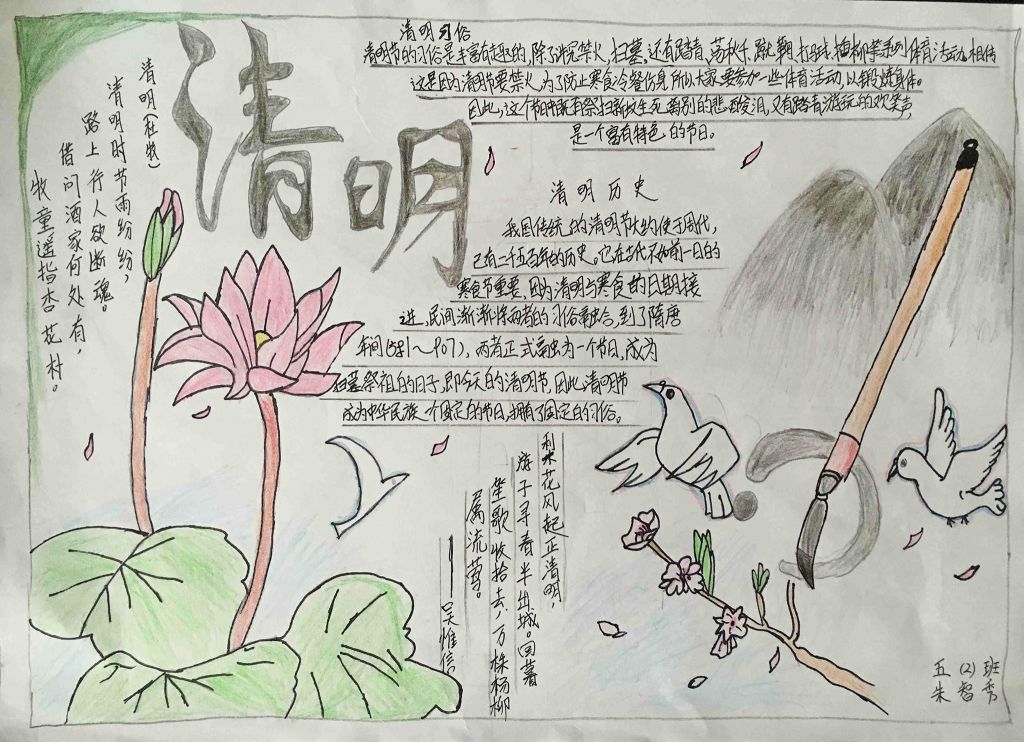 清明
清明习俗
清明节的习俗是丰富有趣的,除了讲究禁火、扫墓,还有踏青、荡秋千、蹴鞠、打马球、插柳等系列体育活动。相传
这是因为清明节要禁火,为了防止寒食冷餐伤身,所以大家要参加一些体育活动,以锻炼身体。
因此,这个节日中既有祭扫新坟生死离别的悲酸泪,又有踏青游玩的欢笑声,
是一个富有特色的节日。
清明(杜牧)
清明时节雨纷纷,
路上行人欲断魂。
借问酒家何处有,
牧童遥指杏花村。
清明历史
我国传统的清明节大约始于周代,
已有二千五百年的历史。它在古代不如前一日的
寒食节重要,因为清明与寒食的日期接
进,民间渐渐将两者的习俗融合,到了隋唐
年间(581~907),两者正式融为一个节日,成为
扫墓祭祖的日子,即今天的清明节,因此清明节
成为中华民族一个固定的节日,拥有了固定的习俗。
花风起正清明,
游子寻春半出城。日暮
笙歌收拾去,万株杨柳
属流莺。
——吴惟信
五(2)班
朱智秀